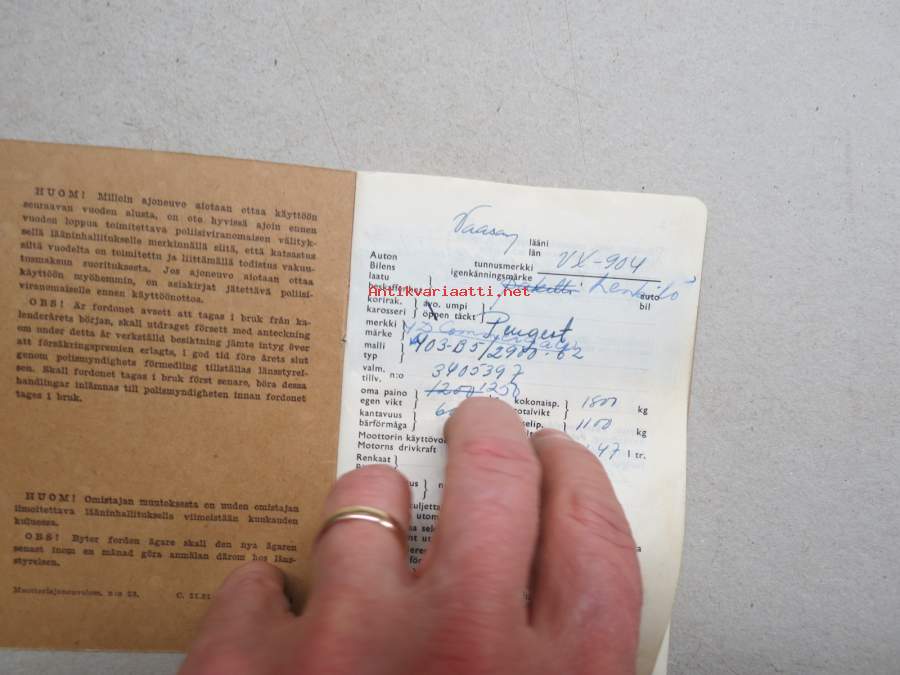 HUOM! Milloin ajoneuvo aiotaan ottaa käyttöön
seuraavan vuoden alusta, on ote hyvissä ajoin ennen
vuoden loppua toimitettava poliisiviranomaisen välityk-
sellä lääninhallitukselle merkinnällä siitä, että katsastus
siltä vuodelta on toimitettu ja liittämällä todistus vakuu-
tusmaksun suorituksesta. Jos ajoneuvo aiotaan ottaa
käyttöön myöhemmin, on asiakirjat jätettävä poliisi-
viranomaiselle ennen käyttöönottoa.
OBS! Är fordonet avsett att tagas i bruk från ka-
lenderårets början, skall utdraget försett med anteckning
om under detta år verkställd besiktning jämte intyg över
att försäkringspremien erlagts, i god tid före årets slut
genom polismyndighets förmedling tillställas länsstyrel-
sen. Skall fordonet tagas i bruk först senare, böra dessa
handlingar inlämnas till polismyndigheten innan fordonet
tages i bruk.
HUOM! Omistajan muutoksesta on uuden omistajan
ilmoitettava lääninhallitukselle viimeistään kuukauden
kuluessa.
OBS! Byter fordon ägare skall den nya ägaren
senast inom en månad göra anmälan därom hos läns-
styrelsen.
Moottoriajoneuvolom. n:o 23.
Vaasan lääni
län
Auton tunnusmerkki VX-904
Bilens igenkänningsmärke
laatu
beskaffenhet auto
bil
korirak. avo. umpi
karosseri öppen täckt
merkki Peugeot
märke
malli 403-B5/2900-62
typ
valm. n:o 3405397
tillv.
oma paino 1200 1250 kokonaisp. 1800 kg
egen vikt totalvikt
kantavuus 1100 kg
bärförmåga
Moottorin käyttövoi
Motorns drivkraft 1,47 l tr.
Renkaat
Antikvariaatti.net